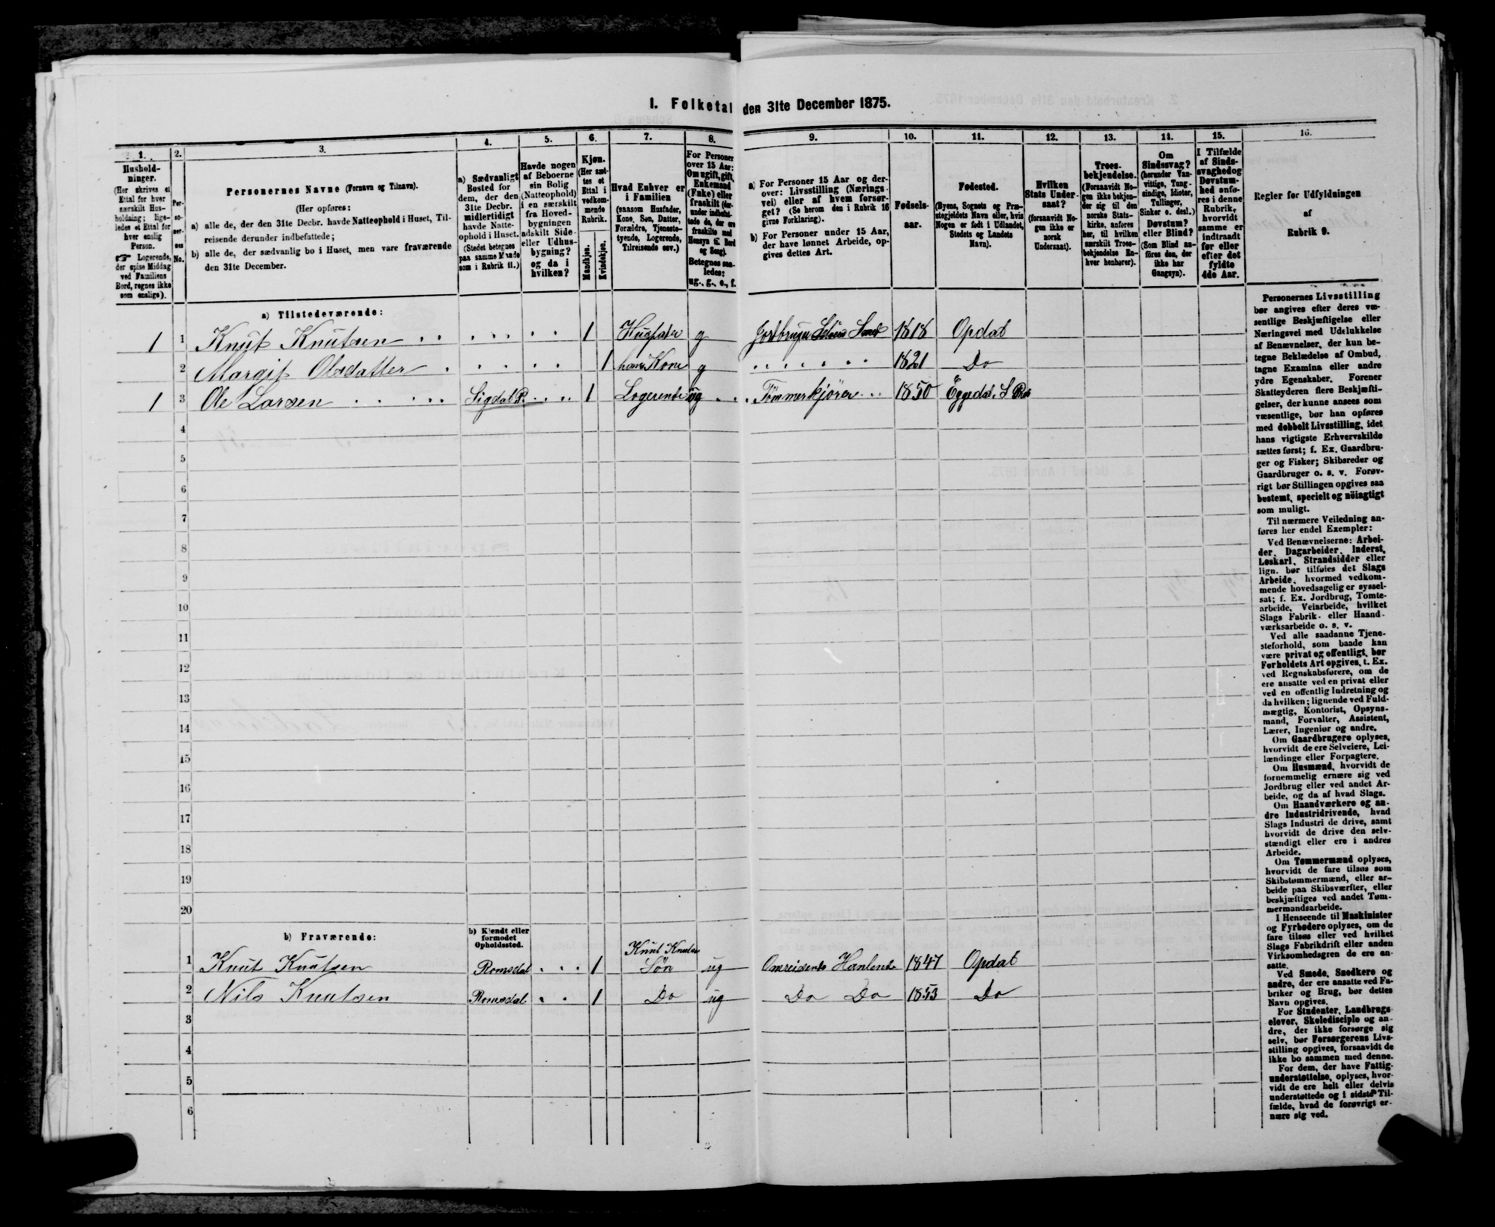 I. Folketal den 31te December 1875.
1.
2.
3.
4.
5.
6.
7.
8.
9.
10.
11.
12.
13.
14.
15.
16.
Hushold-
ninger.
(Her skrives et
Ettal for hver
særskilt Hus-
holdning; lige-
ledes et Ettal for
hver enslig
Person.
☞ Logerende,
der spise Middag
ved Familiens
Bord, regnes ikke
som enslige).
Personernes Navne (Fornavn og Tilnavn).
(Her opføres:
a) alle de, der den 31te Decbr. havde Natteophold i Huset, Til-
reisende derunder indbefattede;
b) alle de, der sædvanlig bo i Huset, men vare fraværende
den 31te December.
a) Sædvanligt
Bosted for
dem, der den
31te Decbr.
midlertidigt
havde Natte-
ophold i Huset.
(Stedet betegnes
paa samme Maade
som i Rubrik 11.)
Havde nogen
af Beboerne
sin Bolig
(Natteophold)
i en særskilt
fra Hoved-
bygningen
adskilt Side-
eller Udhus-
bygning?
og da i
hvilken?
Kjøn.
(Her sæt-
tes et
Ettal i
vedkom-
mende
Rubrik.
Mandkjøn.
Kvindekjøn.
Hvad Enhver er
i Familien
(saasom Husfader,
Kone, Søn, Datter,
Forældre, Tjeneste-
tyende, Logerende,
Tilreisende osv.)
For Personer
over 15 Aar:
Om ugift, gift,
Enkemand
(Enke) eller
fraskilt
Betegnes saa-
ledes:
ug., g., e., f.
a) For Personer 15 Aar og der-
over: Livsstilling (Nærings-
vei) eller af hvem forsør-
get? (Se herom den i Rubrik 16
givne Forklaring).
b) For Personer under 15 Aar,
der have lønnet Arbeide, op-
gives dettes Art.
Fødsels-
aar.
Fødested.
(Byens, Sognets og Præ-
stegjeldets Navn eller, hvis
Nogen er født i Udlandet,
Stedets og Landets
Navn).
Hvilken
Stats Under-
saat?
(forsaavidt No-
gen ikke er
norsk
Undersaat).
Troes-
bekjendelse.
(Forsaavidt No-
gen ikke bekjen-
der sig til den
norske Stats-
kirke, anføres
her, til hvilken
særskilt Troes-
bekjendelse En-
hver henhører).
Om
Sindssvag?
(herunder Van-
vittige, Tung-
sindige, Idioter,
Tullinger,
Sinker o. desl.)
Døvstum?
eller Blind?
(Som Blind an-
føres den, der
ikke har
Gangsyn).
I Tilfælde
af Sinds-
svaghed og
Døvstum-
hed anfø-
res i denne
Rubrik,
hvorvidt
samme er
indtraadt
før eller
efter det
fyldte
4de Aar.
Regler for Udfyldningen
af
Rubrik 9.
a) Tilstedeværende:
1 1 Knut Knutsen 1 Husfader g Jordbruger Selveier 1818 Opdal
2 Margit Olsdatter 1 hans Kone g 1821 Do
1 3 Ole Larsen Sigdal P. 1 Logerende ug Tømmerkjører 1850 Eggedal. S Præ
4
5
6
7
8
9
10
11
12
13
14
15
16
17
18
19
20
b) Fraværende:
b) Kjendt eller
formodet
Opholdssted.
Knut Knutsen
1 Knut Knutsen Romsdal 1 Søn ug Omreisende Handlende 1847 Opdal
2 Nils Knutsen Romsdal 1 Do ug Do Do 1853 Do
3
4
5
6
Personernes Livsstilling
bør angives efter deres væ-
sentlige Beskjæftigelse eller
Næringsvei med Udelukkelse
af Benævnelser, der kun be-
tegne Beklædelse af Ombud,
tagne Examina eller andre
ydre Egenskaber. Forener
Skatteyderen flere Beskjæfti-
gelser, der kunne ansees som
væsentlige, bør han opføres
med dobbelt Livsstilling, idet
hans vigtigste Erhvervskilde
sættes først; f. Ex. Gaardbru-
ger og Fisker; Skibsreder og
Gaardbruger o. s. v. Forøv-
rigt bør Stillingen opgives saa
bestemt, specielt og nöiagtigt
som muligt.
Til nærmere Veiledning an-
føres her endel Exempler:
Ved Benævnelserne: Arbei-
der, Dagarbeider, Inderst,
Løskarl, Strandsidder eller
lign. bør tilføies det Slags
Arbeide, hvormed vedkom-
mende hovedsagelig er syssel-
sat; f. Ex. Jordbrug, Tomte-
arbeide, Veiarbeide, hvilket
Slags Fabrik- eller Haand-
værksarbeide o. s. v.
Ved alle saadanne Tjene-
steforhold, som baade kan
være privat og offentligt, bør
Forholdets Art opgives, t. Ex.
ved Regnskabsførere, om de
ere ansatte ved en privat eller
ved en offentlig Indretning og
da hvilken; lignende ved Fuld-
mægtig, Kontorist, Opsyns-
mand, Forvalter, Assistent,
Lærer, Ingeniør og andre.
Om Gaardbrugere oplyses,
hvorvidt de ere Selveiere, Lei-
lændinge eller Forpagtere.
Om Husmænd, hvorvidt de
fornemmelig ernære sig ved
Jordbrug eller ved andet Ar-
beide, og da af hvad Slags.
Om Haandværkere og an-
dre Industridrivende, hvad
Slags Industri de drive, samt
hvorvidt de drive den selv-
stændigt eller ere i andres
Arbeide.
Om Tømmermænd oplyses,
hvorvidt de fare tilsøs som
Skibstømmermænd, eller ar-
beide paa Skibsværfter, eller
beskjæftiges ved andet Tøm-
mermandsarbeide.
I Henseende til Maskinister
og Fyrbødere oplyses, om de
fare tilsøs eller ved hvilket
Slags Fabrikdrift eller anden
Virksomhedsgren de ere an-
satte.
Ved Smede, Snedkere og
andre, der ere ansatte ved Fa-
briker og Brug, bør dettes
Navn opgives.
For Studenter, Landbrugs-
elever, Skoledisciple og an-
dre, der ikke forsørge sig
selv, bør Forsørgerens Livs-
stilling opgives, forsaavidt de
ikke bo sammen med denne.
For dem, der have Fattig-
understøttelse, oplyses, hvor-
vidt de ere helt eller delvis
understøttede og i sidste Til-
fælde, hvad de forøvrigt er-
nære sig ved.